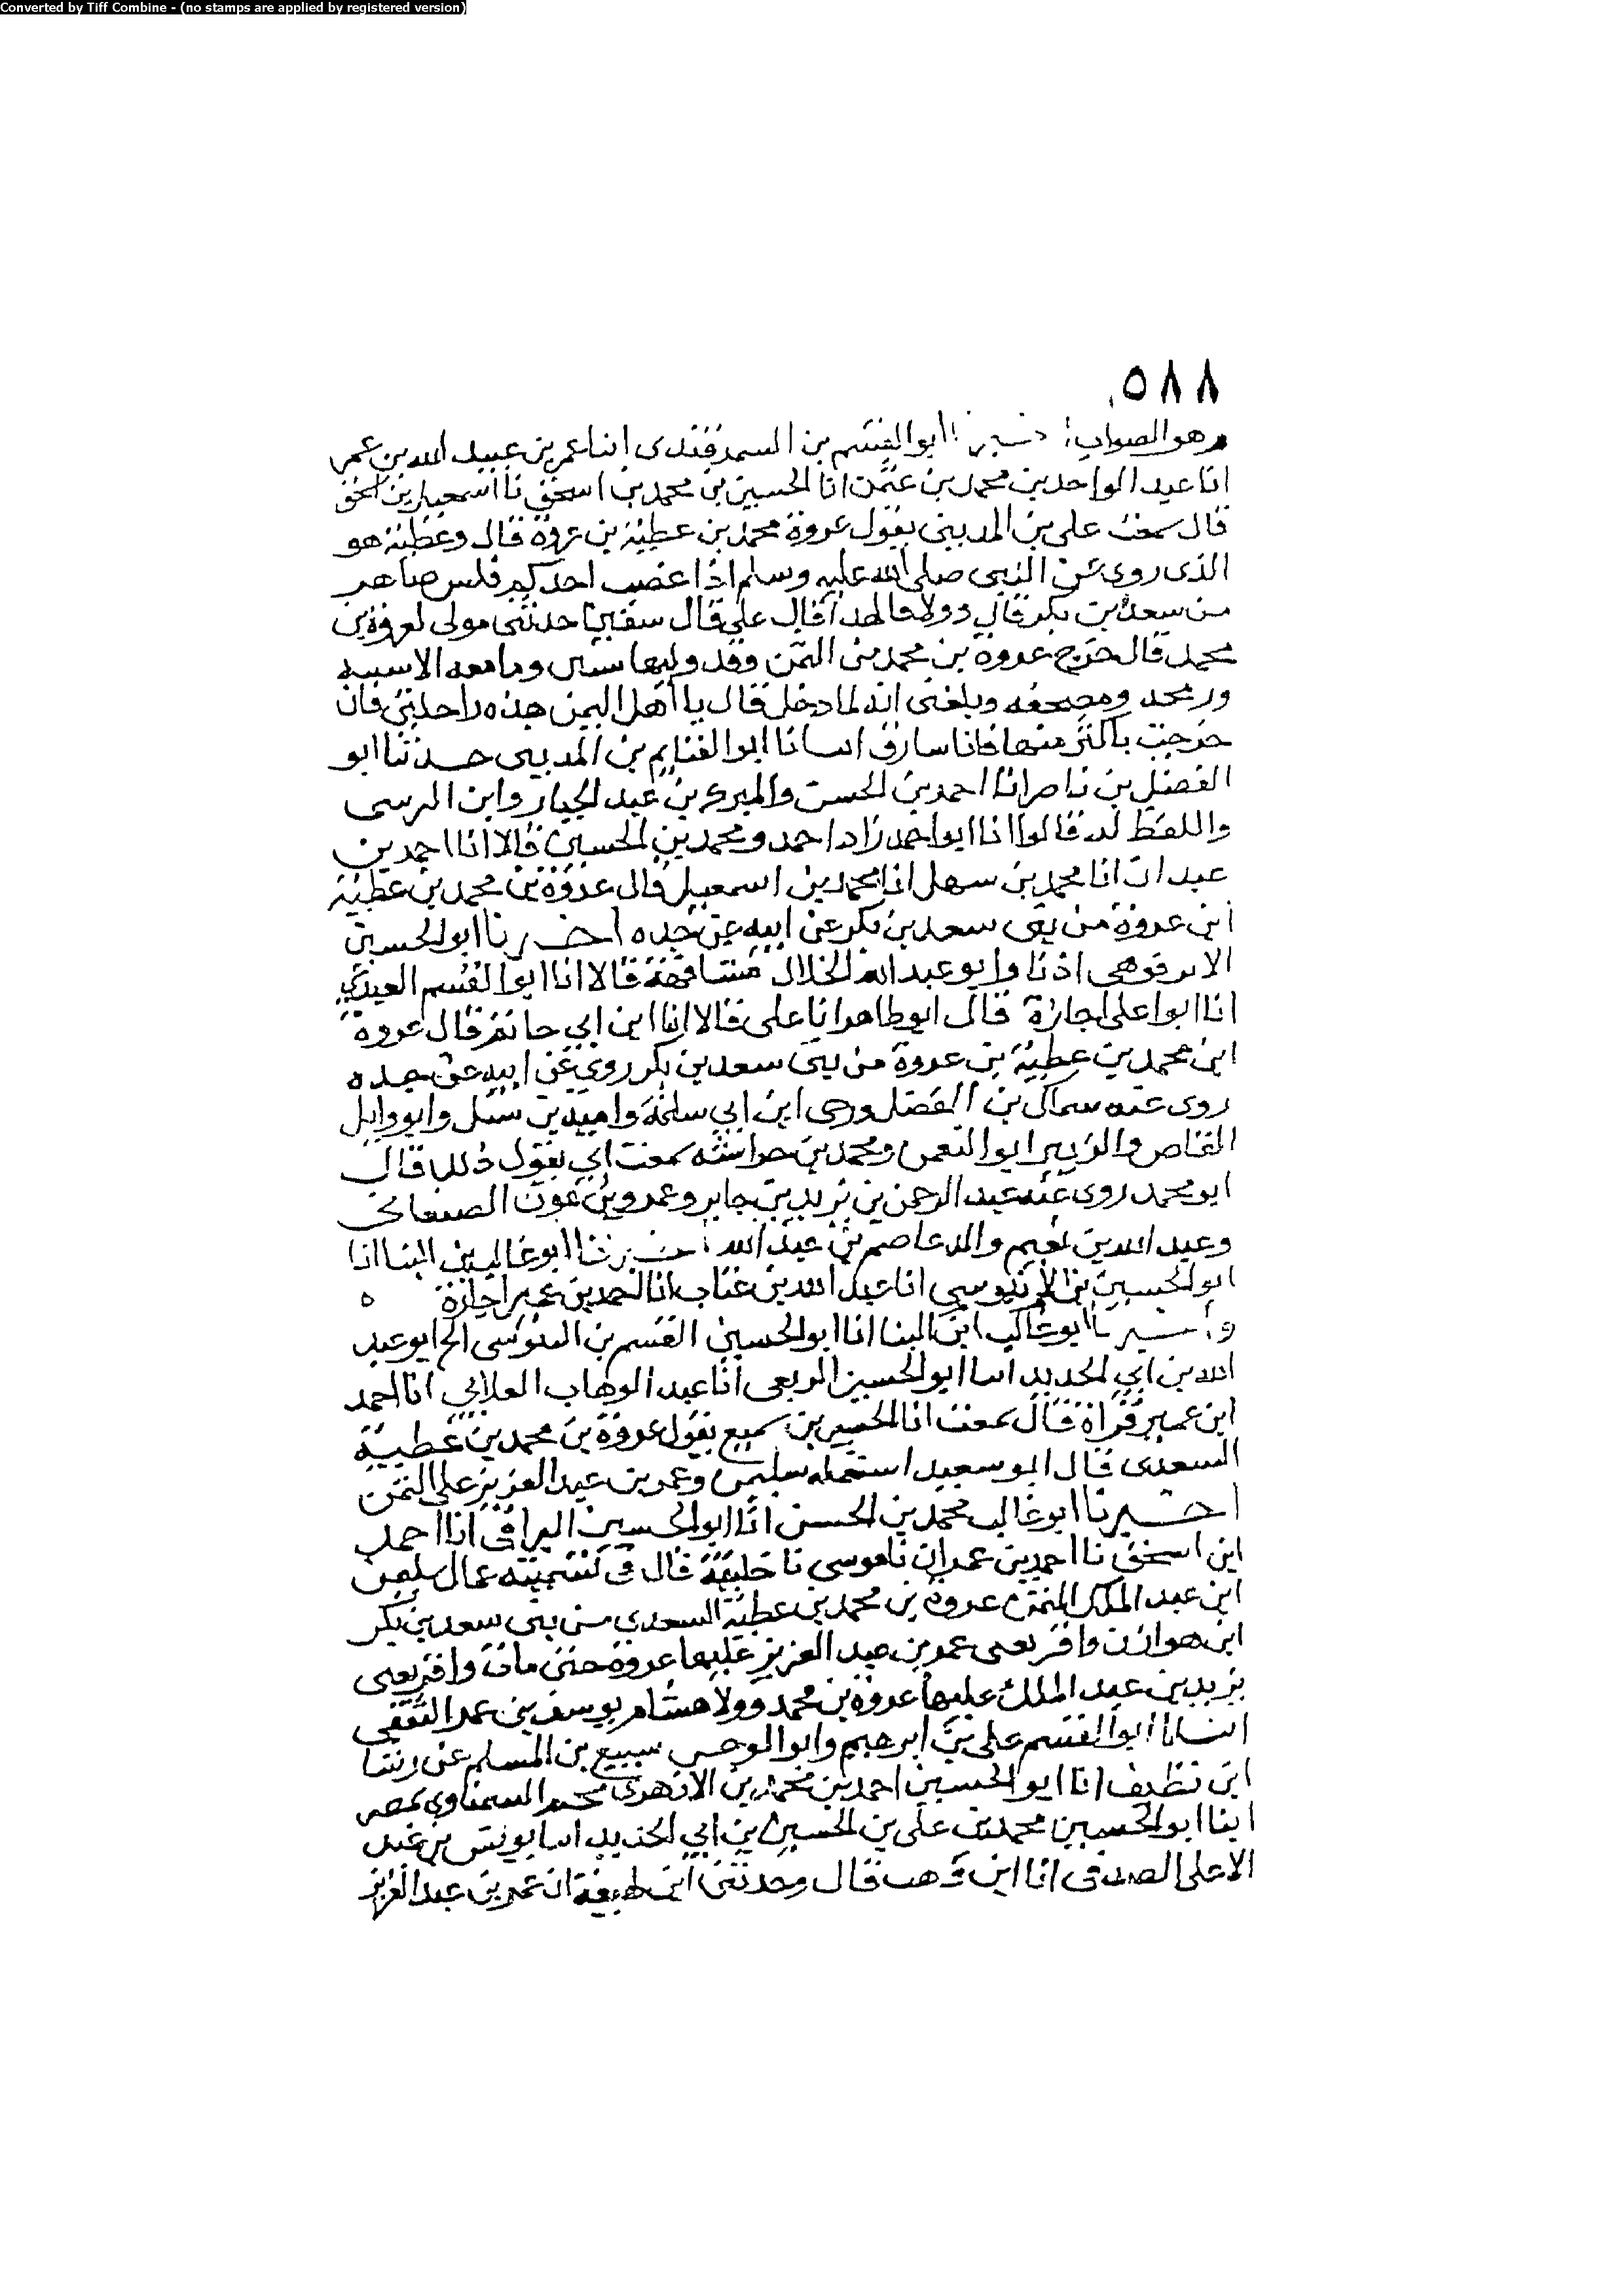 Converted by Tiff Combine - (no stamps are applied by registered version)
٥٨٨
وهو الصواب اخبرنا ابو القسم بن السمرقندى انبا عمر بن عبيد الله بن عمر
انا عبد الواحد بن محمد بن عثمن انا الحسين بن محمد بن اسحق نا اسمعيل بن اسحق
قال سمعت على بن المدينى يقول عروة بن محمد بن عطية بن عروة قال وعطية هو
الذى روى عن النبى صلى الله عليه وسلم اذا غضب احدكم
من سعد بن بكر قال على قال سفين حدثنى مولى لعروة بن
محمد قال خرج عروة بن محمد من اليمن وقد وليها سنين وما معه الا سيفه
ورمحه ومصحفه وبلغنى انه لما دخل قال يا اهل اليمن هذه راحلتى فان
خرجت باكثر منها فانا سارق انبانا ابو الغنايم بن حدثنا ابو
الفضل بن ناصر انا احمد بن الحسن والمبرك بن عبد الجبار وابن النرسى
واللفظ له قالوا انا ابو احمد زاد احمد ومحمد بن الحسين قالا انا احمد بن
عبدان انا محمد بن سهل انا محمد بن اسمعيل قال عروة بن محمد بن عطية
ابن عروة من بنى سعد بن بكر عن ابيه عن جده اخبرنا ابو الحسين
الابرقوهى اذنا وابو عبد الله الخلال مشافهة قالا انا ابو القسم العبدى
انا ابوا على اجازة قال ابو طاهر انا على قالا انا ابن ابى حاتم قال عروة
ابن محمد بن عطية بن عروة من بنى سعد بن بكر روى عن ابيه عن جده
روى عنه سماك بن الفضل ورجا ابن ابى سلمة واميه بن شبل وابو وايل
القاص والزبير ابو النعمن ومحمد بن خراشه سمعت ابى يقول ذلك قال
ابو محمد روى عنه عبد الرحمن بن يزيد بن جابر وعمرو بن عون الصنعانى
وعبد الله بن نعيم والد عاصم بن عبد الله اخبرنا ابو غالب بن البنا انا
ابو الحسين بن الابنوسى انا عبد الله بن عتاب انا احمد بن عمير اجازة ه
واخبرنا ابو غالب ابن البنا انا ابو الحسين القسم بن السوسى انا ابو عبد
الله بن ابى الحديد انبا ابو الحسين الربعى انا عبد الوهاب الكلابى انا احمد
ابن عمير قراة قال سمعت انا الحسين بن سميع يقول عروة بن محمد بن عطية
السعدى قال ابو سعيد استعمله سليمن وعمر بن عبد العزيز على اليمن
اخبرنا ابو غالب محمد بن الحسن انا ابو الحسين السيرافى انا احمد
ابن اسحق نا احمد بن عمران نا موسى نا خليفة قال فى تسمية عمال سليمن
ابن عبد الملك اليمن عروة بن محمد بن عطية السعدى من بنى سعد بن بكر
ابن هوازن واقر يعنى عمر بن عبد العزيز عليها عروة حتى مات واقر يعنى
يزيد بن عبد الملك عليها عروة بن محمد وولا هشام يوسف بن عمر الثقفى
انبانا ابو القسم على بن ابرهيم وابو الوحش سبيع بن المسلم عن رشا
ابن نظيف انا ابو الحسين احمد بن محمد بن الازهرى محمد السمناوى بمصر
انبا ابو الحسين محمد بن على بن الحسين بن ابى الحديد انبا يونس بن عبد
الاعلى الصدفى انا ابن وهب قال وحدثنى ابن لهيعة ان عمر بن عبد العزيز